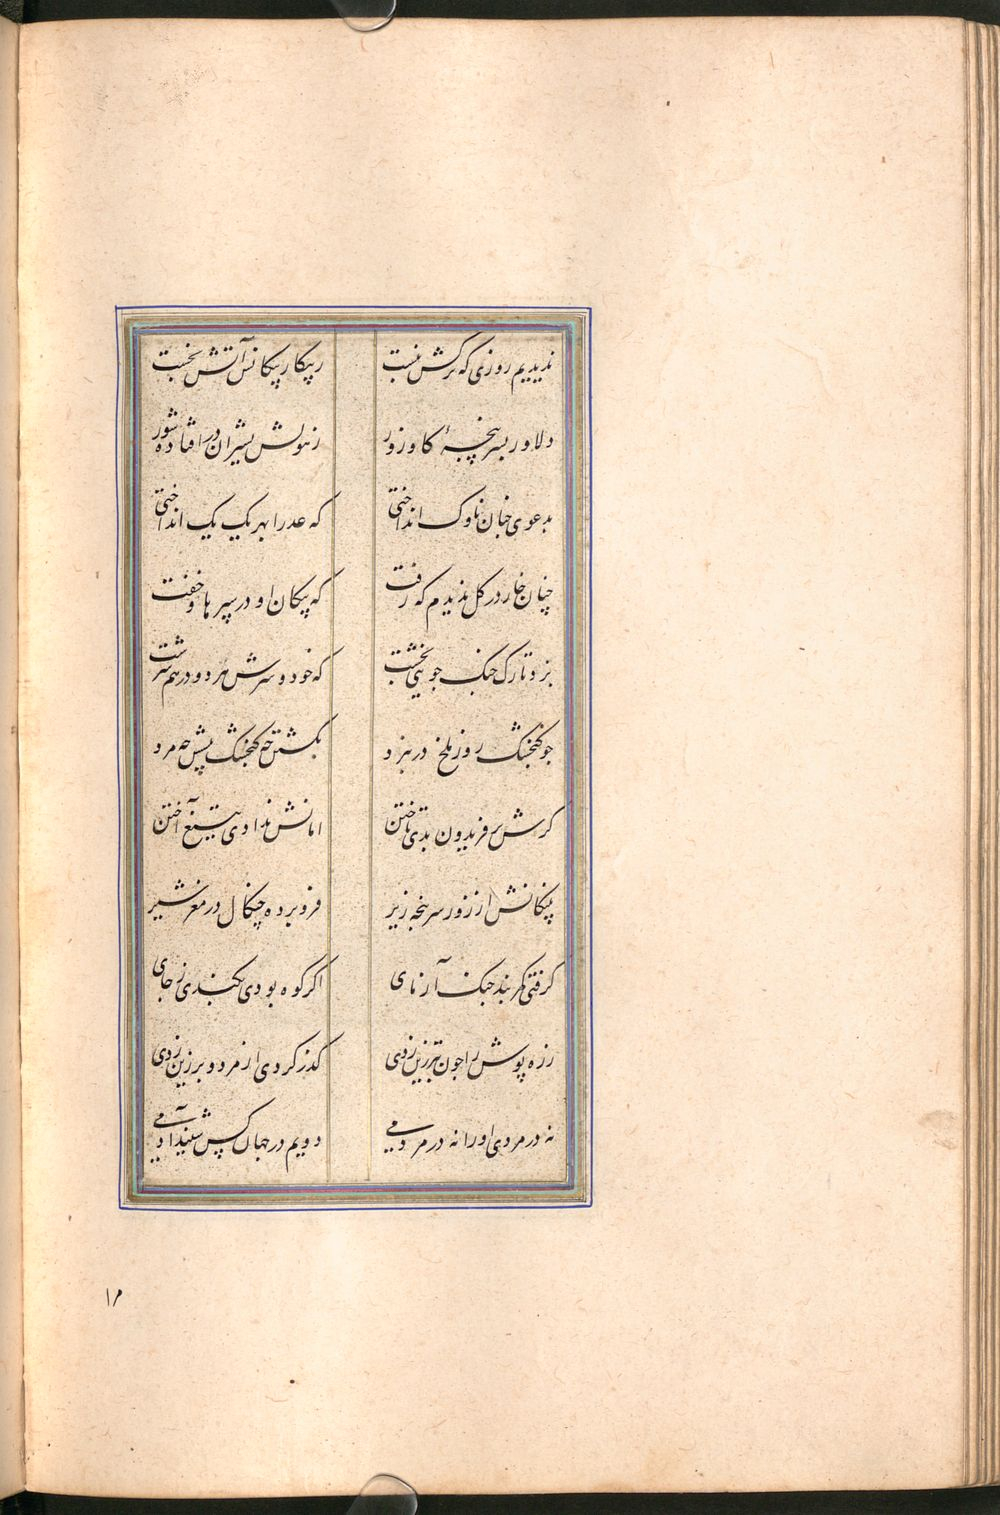 ندیدیم روزی که ترکش نبست ز پیکار پیکانش آتش نجست
دلاور بسرپنجهٔ کاوزور ز هولش بشیران در افتاده شور
بدعوی چنان ناوک انداختی که عدرا بهر یک یک انداختی
چنان خار در کل ندیدم که رفت که پیکان او در سپرها و خفت
نزد تارک جنک جویی بخشت که خود و سرش هردو درهم سرشت
جو کنجشک روز ملخ در نبرد بکشتن چه کنجشک پیشش چه مرد
کرش بر فریدون بدی تاختن امانش ندادی بتیغ آختن
پلنکانش از زور سرپنجه زیر فرو برده چنکال در مغز شیر
کرفتی کمربند جنک آزمای اکر کوه بودی بکندی ز جای
زره پوش را جون تبرزین زدی کذر کردی از مرد و بر زین زدی
نه در مردی او را نه در مردمی دویم در جهان کس شنید آدمی